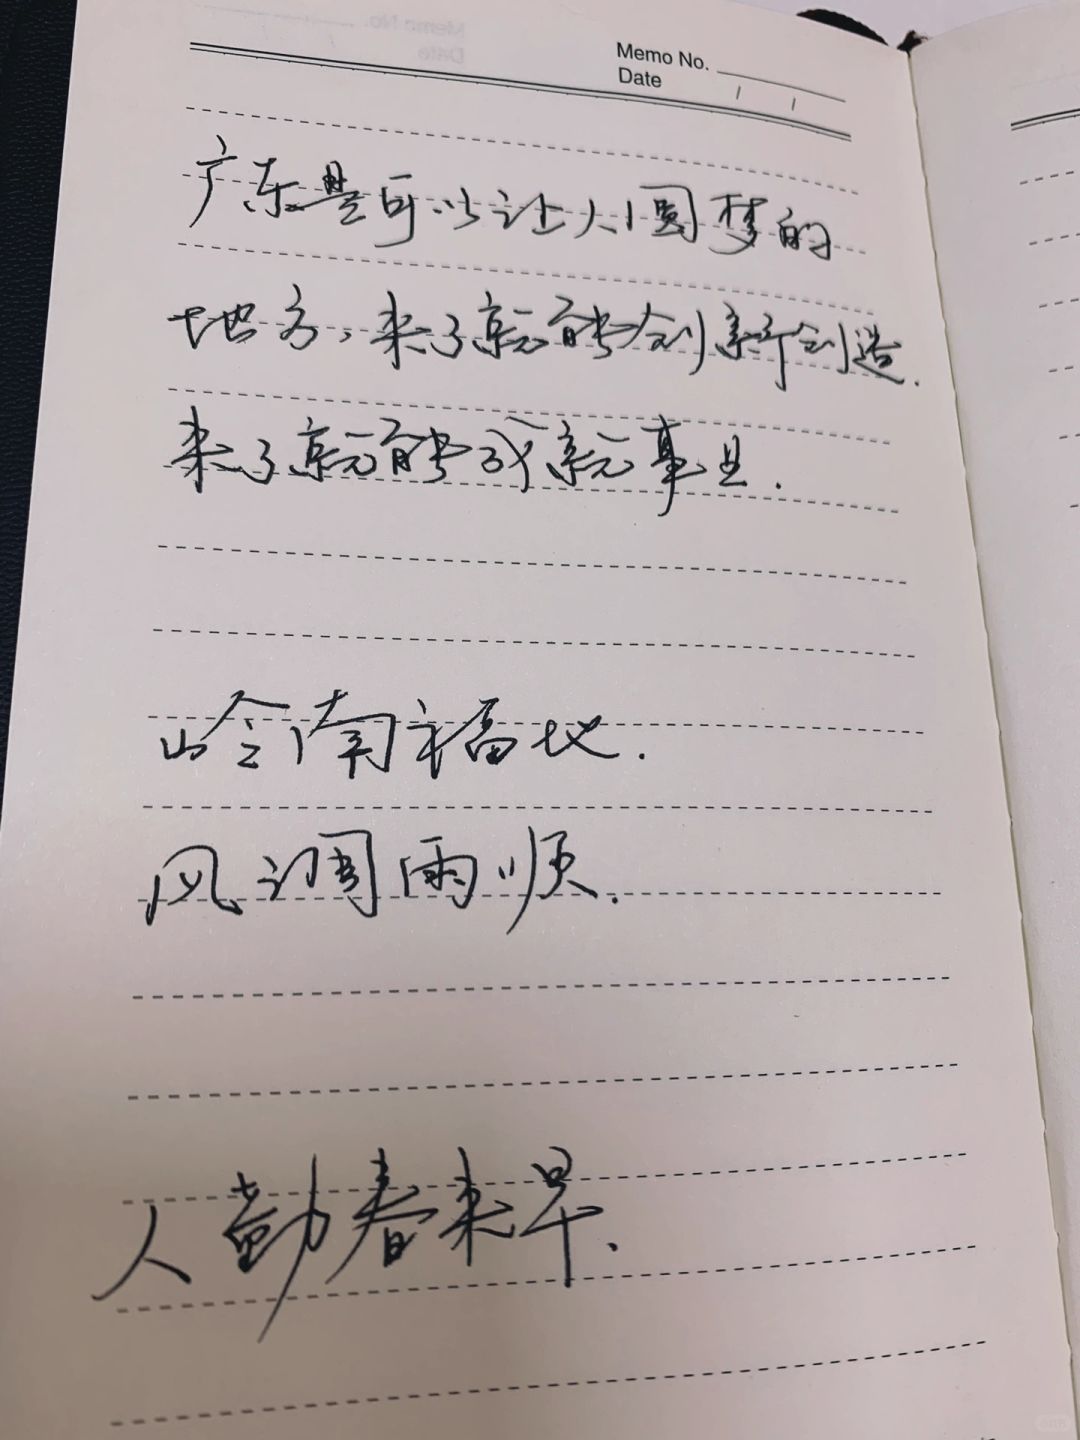 Memo No.
Date / /
广东是可以让人圆梦的
地方,来了就能创新创造.
来了就能成就事业.
岭南福地.
风调雨顺.
人勤春来早.